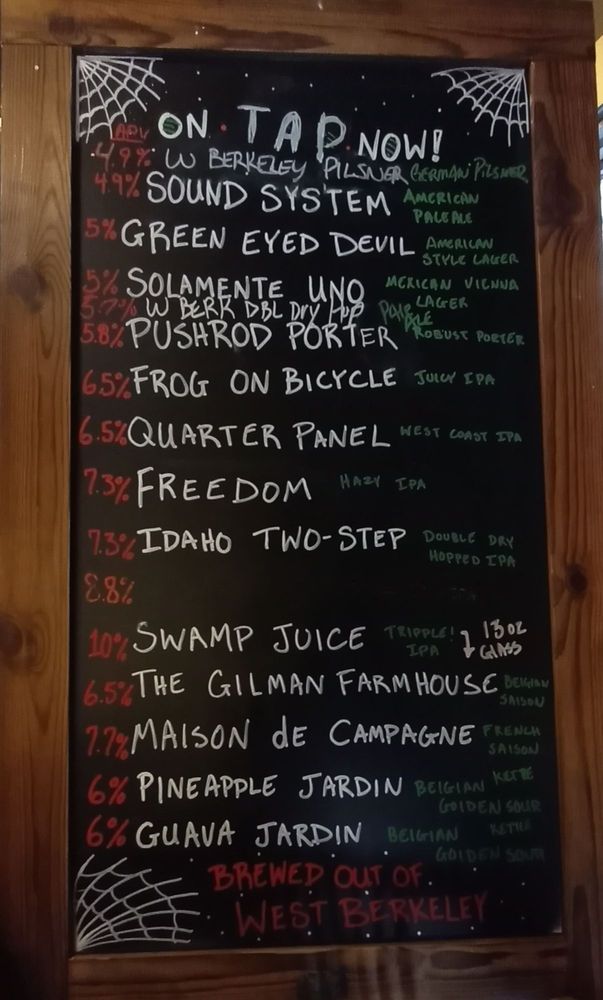 ON · TAP NOW!
ABV
4.9% W BERKELEY PILSNER GERMAN PILSNER
4.9% SOUND SYSTEM AMERICAN PALE ALE
5% GREEN EYED DEVIL AMERICAN STYLE LAGER
5% SOLAMENTE UNO MERICAN VIENNA LAGER
5.7% W BERK DBL Dry Hop Pale
5.8% PUSHROD PORTER ROBUST PORTER
6.5% FROG ON BICYCLE JUICY IPA
6.5% QUARTER PANEL WEST COAST IPA
7.3% FREEDOM HAZY IPA
7.3% IDAHO TWO-STEP DOUBLE DRY HOPPED IPA
8.8%
10% SWAMP JUICE TRIPPLE! IPA 13 OZ GLASS
6.5% THE GILMAN FARMHOUSE BELGIAN SAISON
7.7% MAISON de CAMPAGNE FRENCH SAISON
6% PINEAPPLE JARDIN BELGIAN KETTLE GOLDEN SOUR
6% GUAVA JARDIN BELGIAN KETTLE GOLDEN SOUR
BREWED OUT OF
WEST BERKELEY